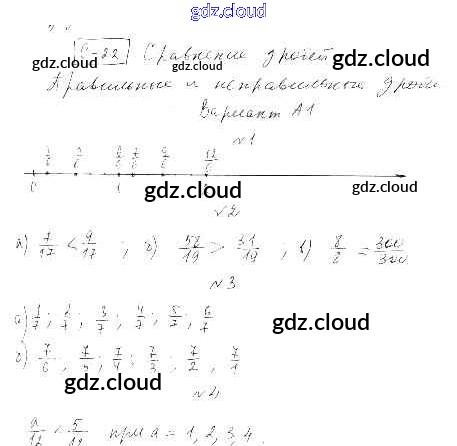 gdz.cloud
С-22 Сравнение дробей.
gdz.cloud gdz.cloud
Правильные и неправильные дроби
gdz.cloud
Вариант А1
№1
0 1
gdz.cloud gdz.cloud
№2
а) 7/17 < 9/17 ; б) 52/19 > 31/19 ; в) 8/8 = 300/300
№3
а) 1/7 ; 2/7 ; 3/7 ; 4/7 ; 5/7 ; 6/7
gdz.cloud
б) 7/6 ; 7/5 ; 7/4 ; 7/3 ; 7/2 ; 7/1
gdz.cloud
gdz.cloud
а/12 < 5/12 при а = 1, 2, 3, 4.